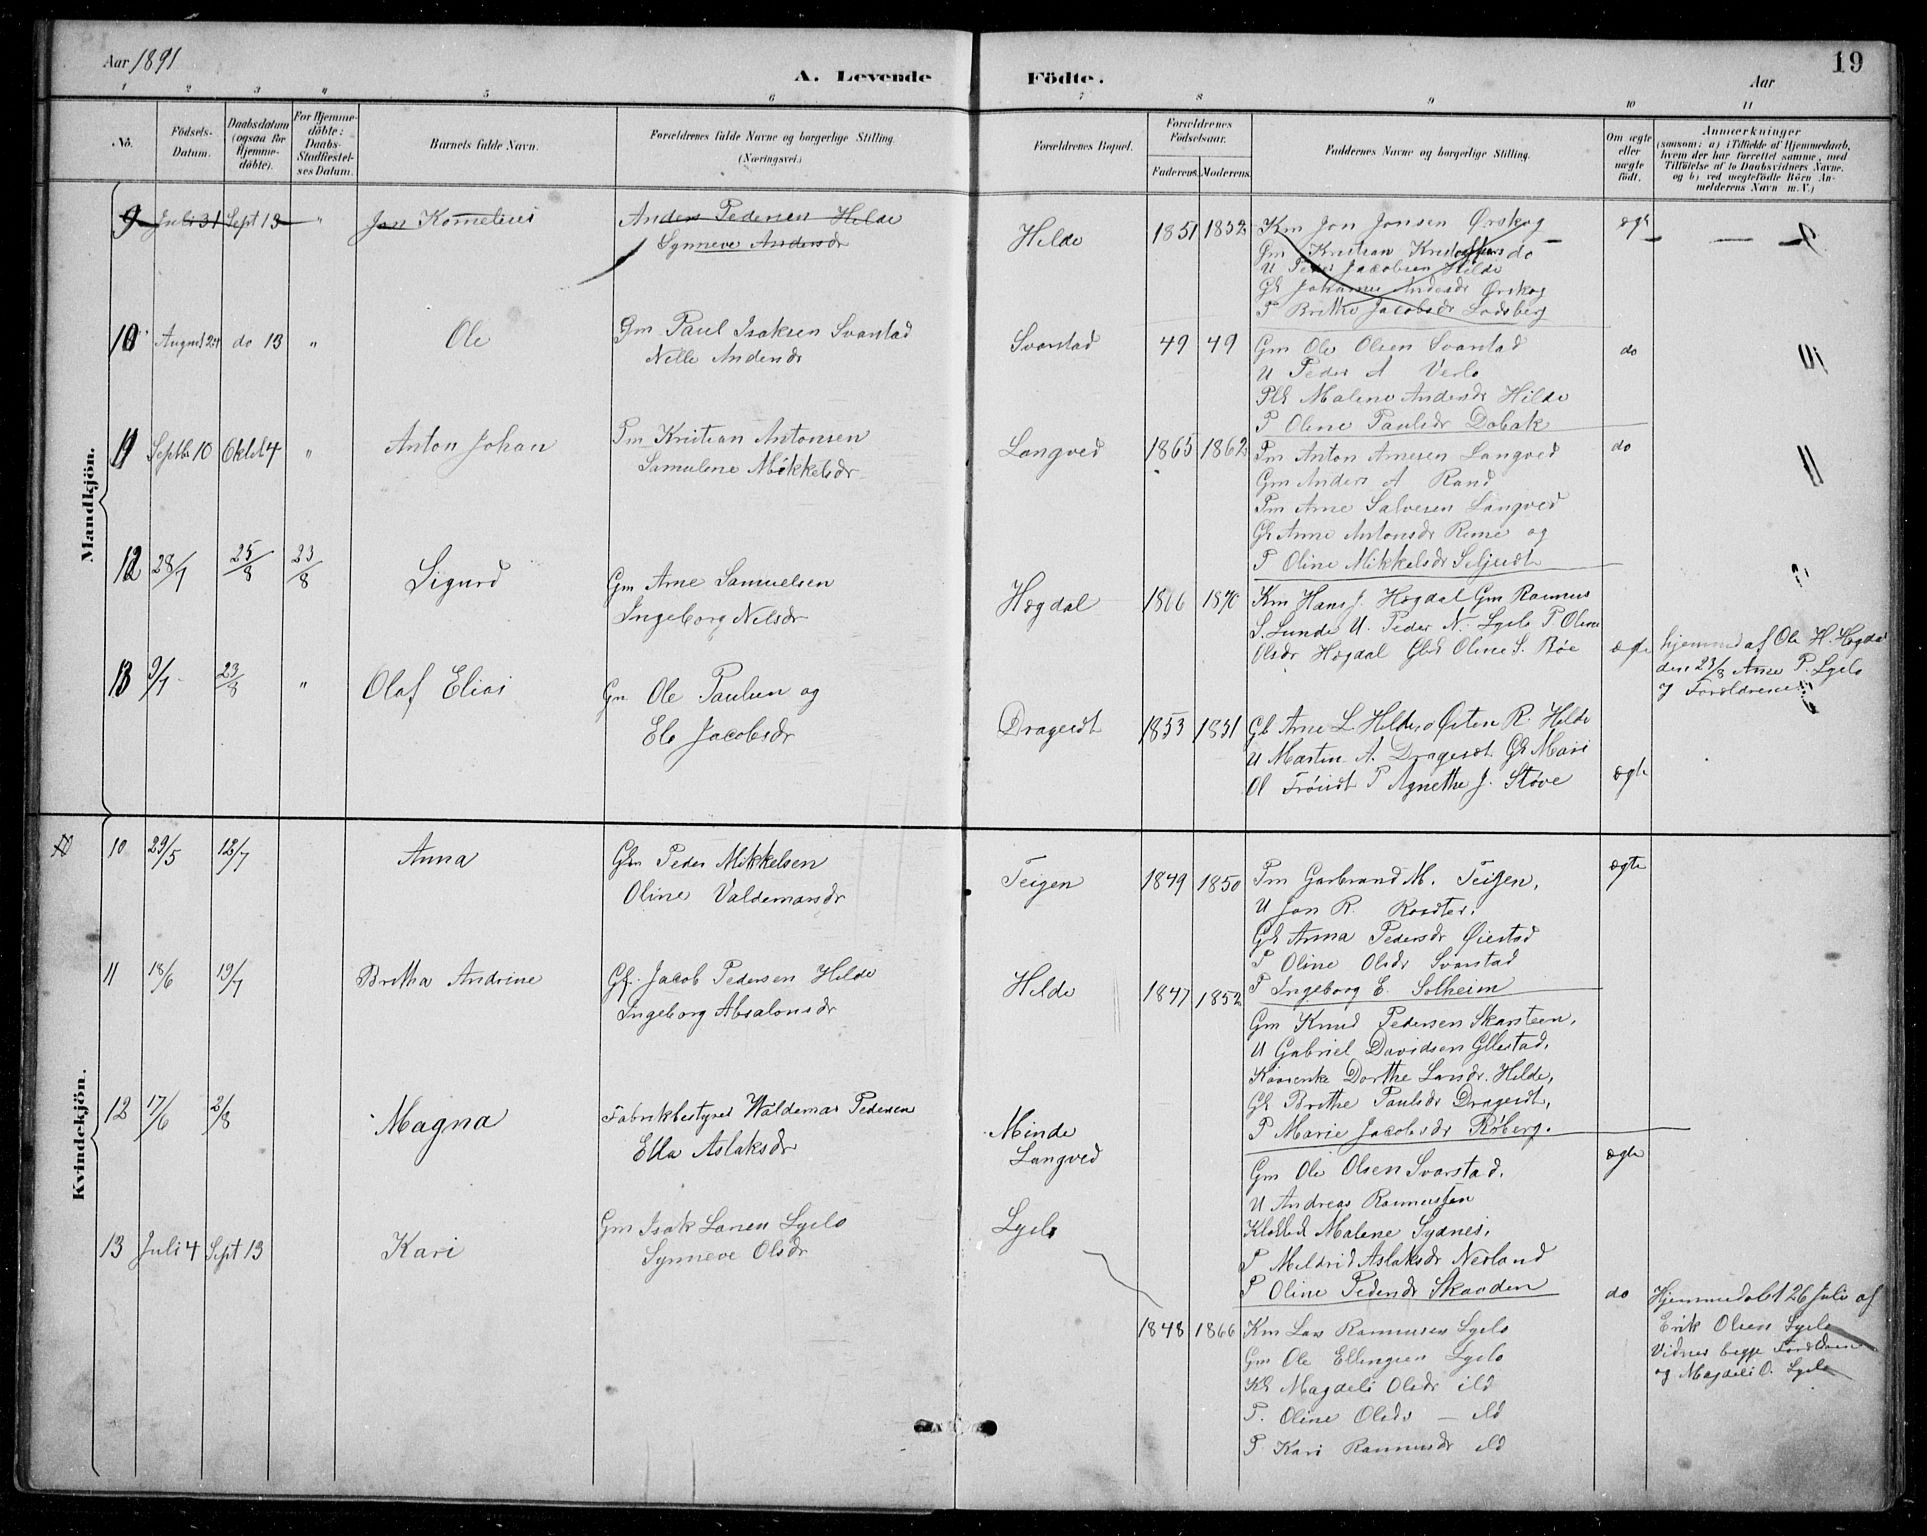 Aar 1891
A. Levende Födte.
Aar
19
1 2 3 4 5 6 7 8 9 10 11
No.
Födsels-Datum.
Daabsdatum (ogsaa for Hjemme-döbte).
For Hjemme-döbte: Daabs-Stadfæstel-ses Datum.
Barnets fulde Navn.
Forældrenes fulde Navne og borgerlige Stilling. (Næringsvei.)
Forældrenes Bopæl.
Forældrenes Födselsaar.
Faderens. Moderens.
Faddernes Navne og borgerlige Stilling.
Om ægte eller uægte födt.
Anmærkninger
(saasom: a) i Tilfælde af Hjemmedaab, hvem der har forrettet samme, med Tilföielse af to Daabsvidners Navne. og b) ved uægtefödte Börn An-melderens Navn m. V.)
Mandkjön.
9 Juli 31 Sept 13 " Jon Kornelius
Anders Pedersen Hilde
Synneve Andersdr
Hilde 1851 1852
Km Jon Jonsen Ørskog
Gm Kristian Kristoffers do
U Peder Jacobsen Hilde
Gk Johanne Andersdr Ørskog
P Brithe Jacobsdr Lodsberg
ægte
9
10 August 24 do 13 " Ole
Gm Paul Isaksen Svarstad
Nille Andersdr
Svarstad 49 49
Gm Ole Olsen Svarstad
U Peder A Verlo
Malene Andersdr Hilde
P Oline Paulsdr Dobak
do
10
11 Septbr 10 Oktbr 4 " Anton Johan
Pm Kristian Antonsen
Samulene Mikkelsdr
Langved 1865 1862
Pm Anton Arnesen Langved
Gm Anders A Rand
Pm Arne Salvesen Langved
Gk Anne Antonsdr Reme og
P Oline Mikkelsdr
do
11
12 28/7 25/8 23/8 Sigurd
Gm Arne Samuelsen
Ingeborg Nilsdr
Høgdal 1866 1870
Km Hans J. Høgdal Gm Rasmus
S. Lunde U. Peder N. Lyslo P Oline
Olsdr Høgdal Oline S. Bøe
ægte
hjemmed af Ole H. Høgdal
den 23/8 Arne P. Lyslo
Forældrene
13 9/7 23/8 " Olaf Elias
Gm Ole Paulsen og
Ele Jacobsdr
Dragesdt 1853 1851
Gk Arne L. Hilde, Østen R. Hilde
U Martin A. Dragesdt Gk Mari
Ol P Agnethe J. Støve
ægte
Kvindekjön.
10 29/5 12/7 Anna
Gm Peder Mikkelsen
Oline Valdemarsdr
Teigen 1849 1850
Pm Garbrand M. Teigen,
U Jon R.
Gk Anna Pedersdr Øiestad
P Oline Olsdr Svarstad
P Ingeborg E. Solheim
ægte
11 18/6 19/7 Britha Andrine
Jacob Pedersen Hilde
Ingeborg Absalonsdr
Hilde 1847 1852
Gm Knud Pedersen Skarsteen,
U Gabriel Davidsen Gllestad,
Dorthe Larsdr. Hilde,
Gk Brithe Paulsdr Dragesdt,
P Marie Jacobsdr Røberg.
12 17/6 2/8 Magna
Fabrikbestyrer Waldemar Pedersen
Ella Aslaksdr
Minde
Langved
Gm Ole Olsen Svarstad,
U Andreas Rasmussen
Malene Sydnes,
P Mildrid Aslaksdr Nesland
P Oline Pedersdr Skaaden
ægte
13 Juli 4 Sept 13 Kari
Gm Isak Larsen Lyslo
Synneve Olsdr
Lyslo
1848 1866
Km Lars Rasmusen Lyslo
Gm Ole Ellingsen Lyslo
Kk Magdeli Olsdr ibd
P. Oline Olsdr — ibd
P Kari Rasmusdr ibd
do
Hjemmedøbt 26 Juli af
Erik Olsen Lyslo
Vidner begge Forældren
og Magdeli O. Lyslo